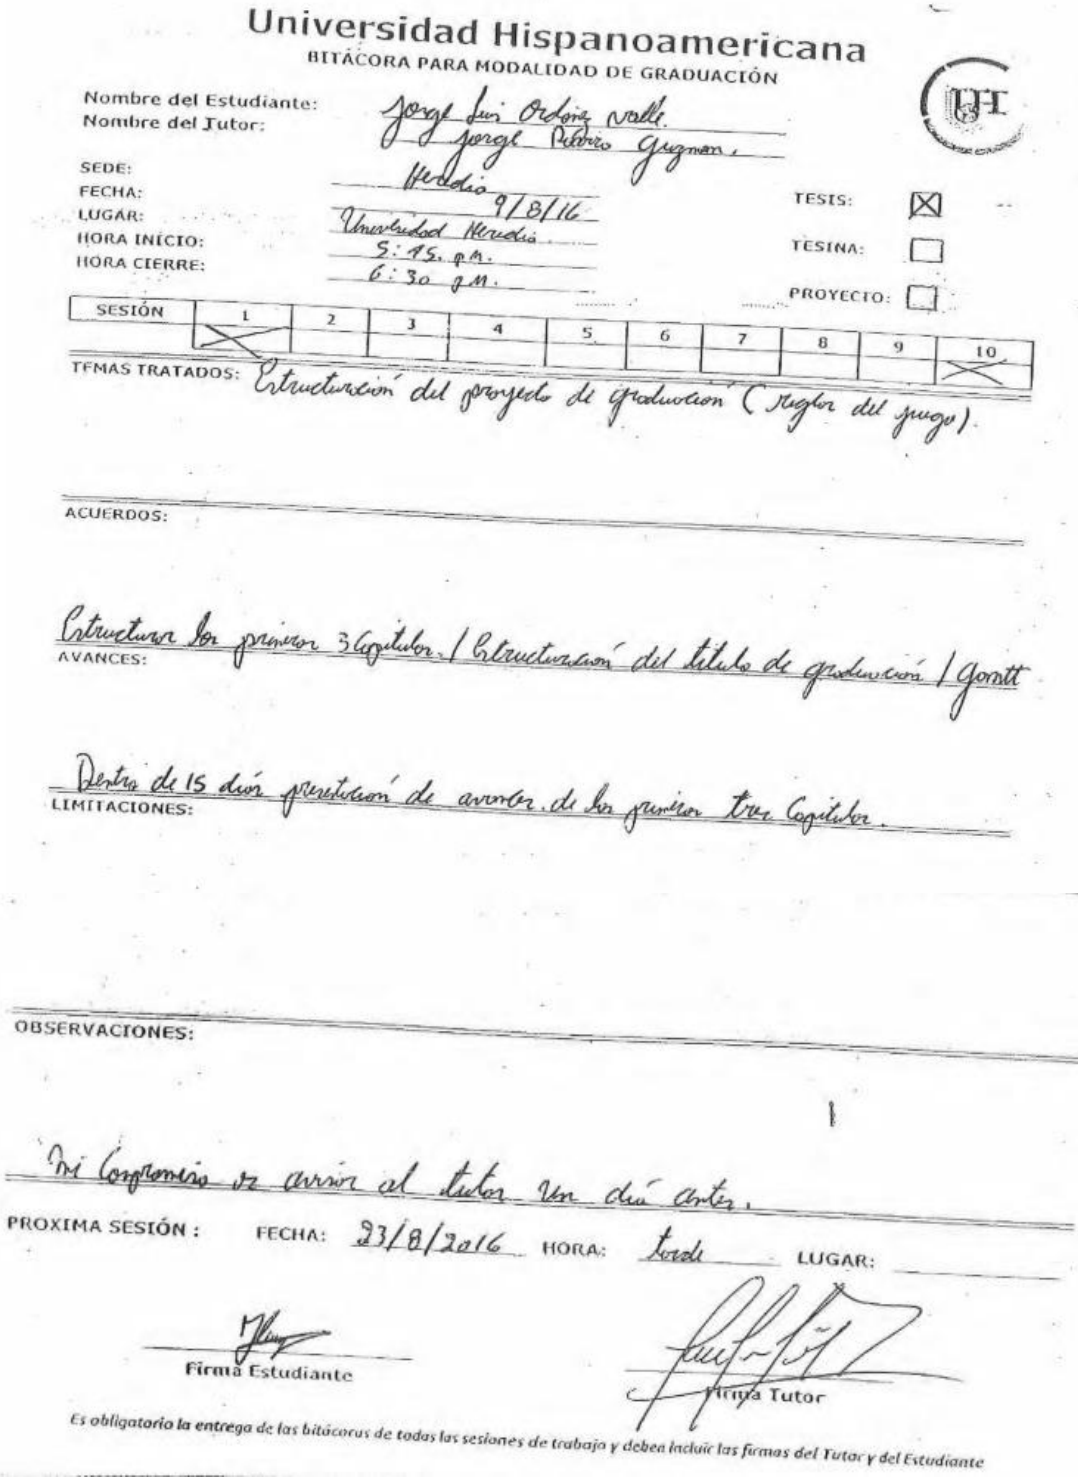 Universidad Hispanoamericana
BITÁCORA PARA MODALIDAD DE GRADUACIÓN
UH
Nombre del Estudiante: Jorge Luis Ordóñez Valle.
Nombre del Tutor: Jorge Guzman.
SEDE: Heredia
FECHA: 9/8/16
TESIS: X
LUGAR: Universidad Heredia.
HORA INICIO: 5:45. pm.
TESINA:
HORA CIERRE: 6:30 pm.
PROYECTO:
SESIÓN 1 2 3 4 5 6 7 8 9 10
TEMAS TRATADOS: Estructuración del proyecto de graduación (reglas del juego).
ACUERDOS:
Estructurar los primeros 3 Capitulos. / Estructuración del titulo de graduación / Gantt
AVANCES:
Dentro de 15 días presentación de avances de los primeros tres Capitulos.
LIMITACIONES:
OBSERVACIONES:
Mi Compromiso es avisar al tutor un día antes.
PROXIMA SESIÓN : FECHA: 23/8/2016 HORA: tarde LUGAR:
Firma Estudiante
Firma Tutor
Es obligatorio la entrega de las bitácoras de todas las sesiones de trabajo y deben incluir las firmas del Tutor y del Estudiante